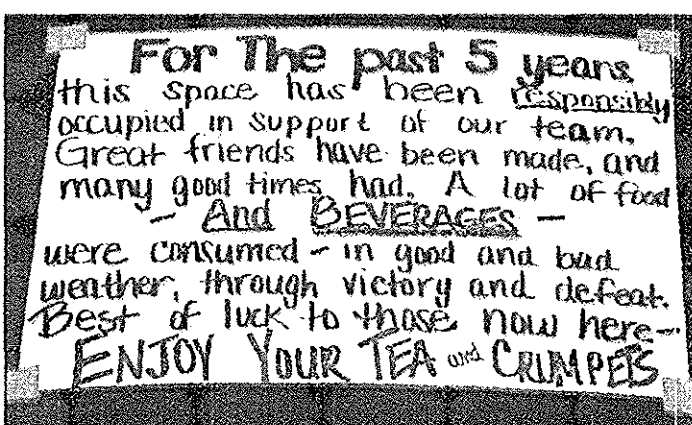 For The past 5 years
this space has been responsibly
occupied in support of our team.
Great friends have been made, and
many good times had. A lot of food
- And BEVERAGES -
were consumed - in good and bad
weather, through victory and defeat.
Best of luck to those now here -
ENJOY YOUR TEA and CRUMPETS